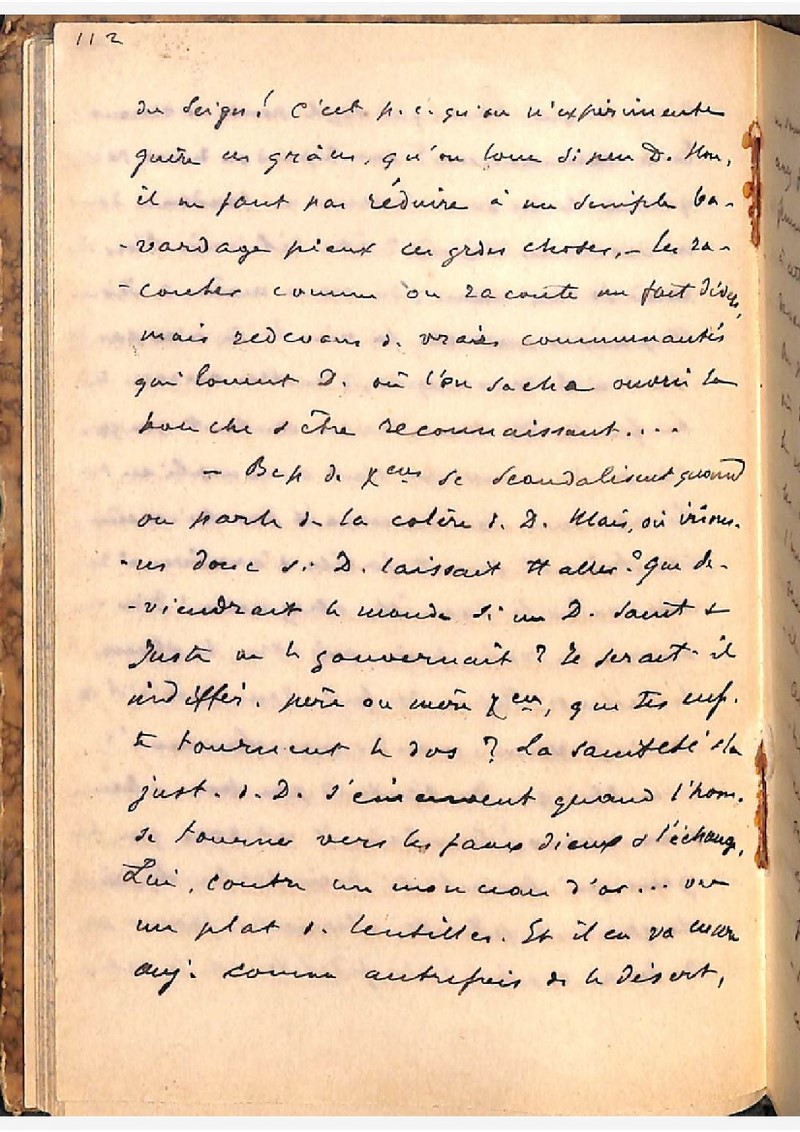 112
du Seigr! C'est p. c. qu'on n'expérimente
guère ces grâces, qu'on loue si peu D. Non,
il ne faut pas réduire à un simple ba-
-vardage pieux ces grdes choses, – les ra-
-conter comme on raconte un fait divers,
mais redevons d. vraies communautés
qui louent D. où l'on sache ouvrir la
bouche & être reconnaissant....
– Bcp de Xens se scandalisent quand
on parle de la colère d. D. Mais, où irions-
-ns donc si D. laissait tt aller? Que de-
-viendrait le monde si un D. saint &
juste ne le gouvernait? Te serait-il
indiffér. père ou mère Xen, que tes enf.
te tournent le dos? La sainteté & la
just. d. D. s'émeuvent quand l'hom.
se tourne vers les faux dieux & l'échange,
Lui, contre un morceau d'or... ou
un plat de lentilles. Et il en va encore
auj. comme autrefois ds le désert,